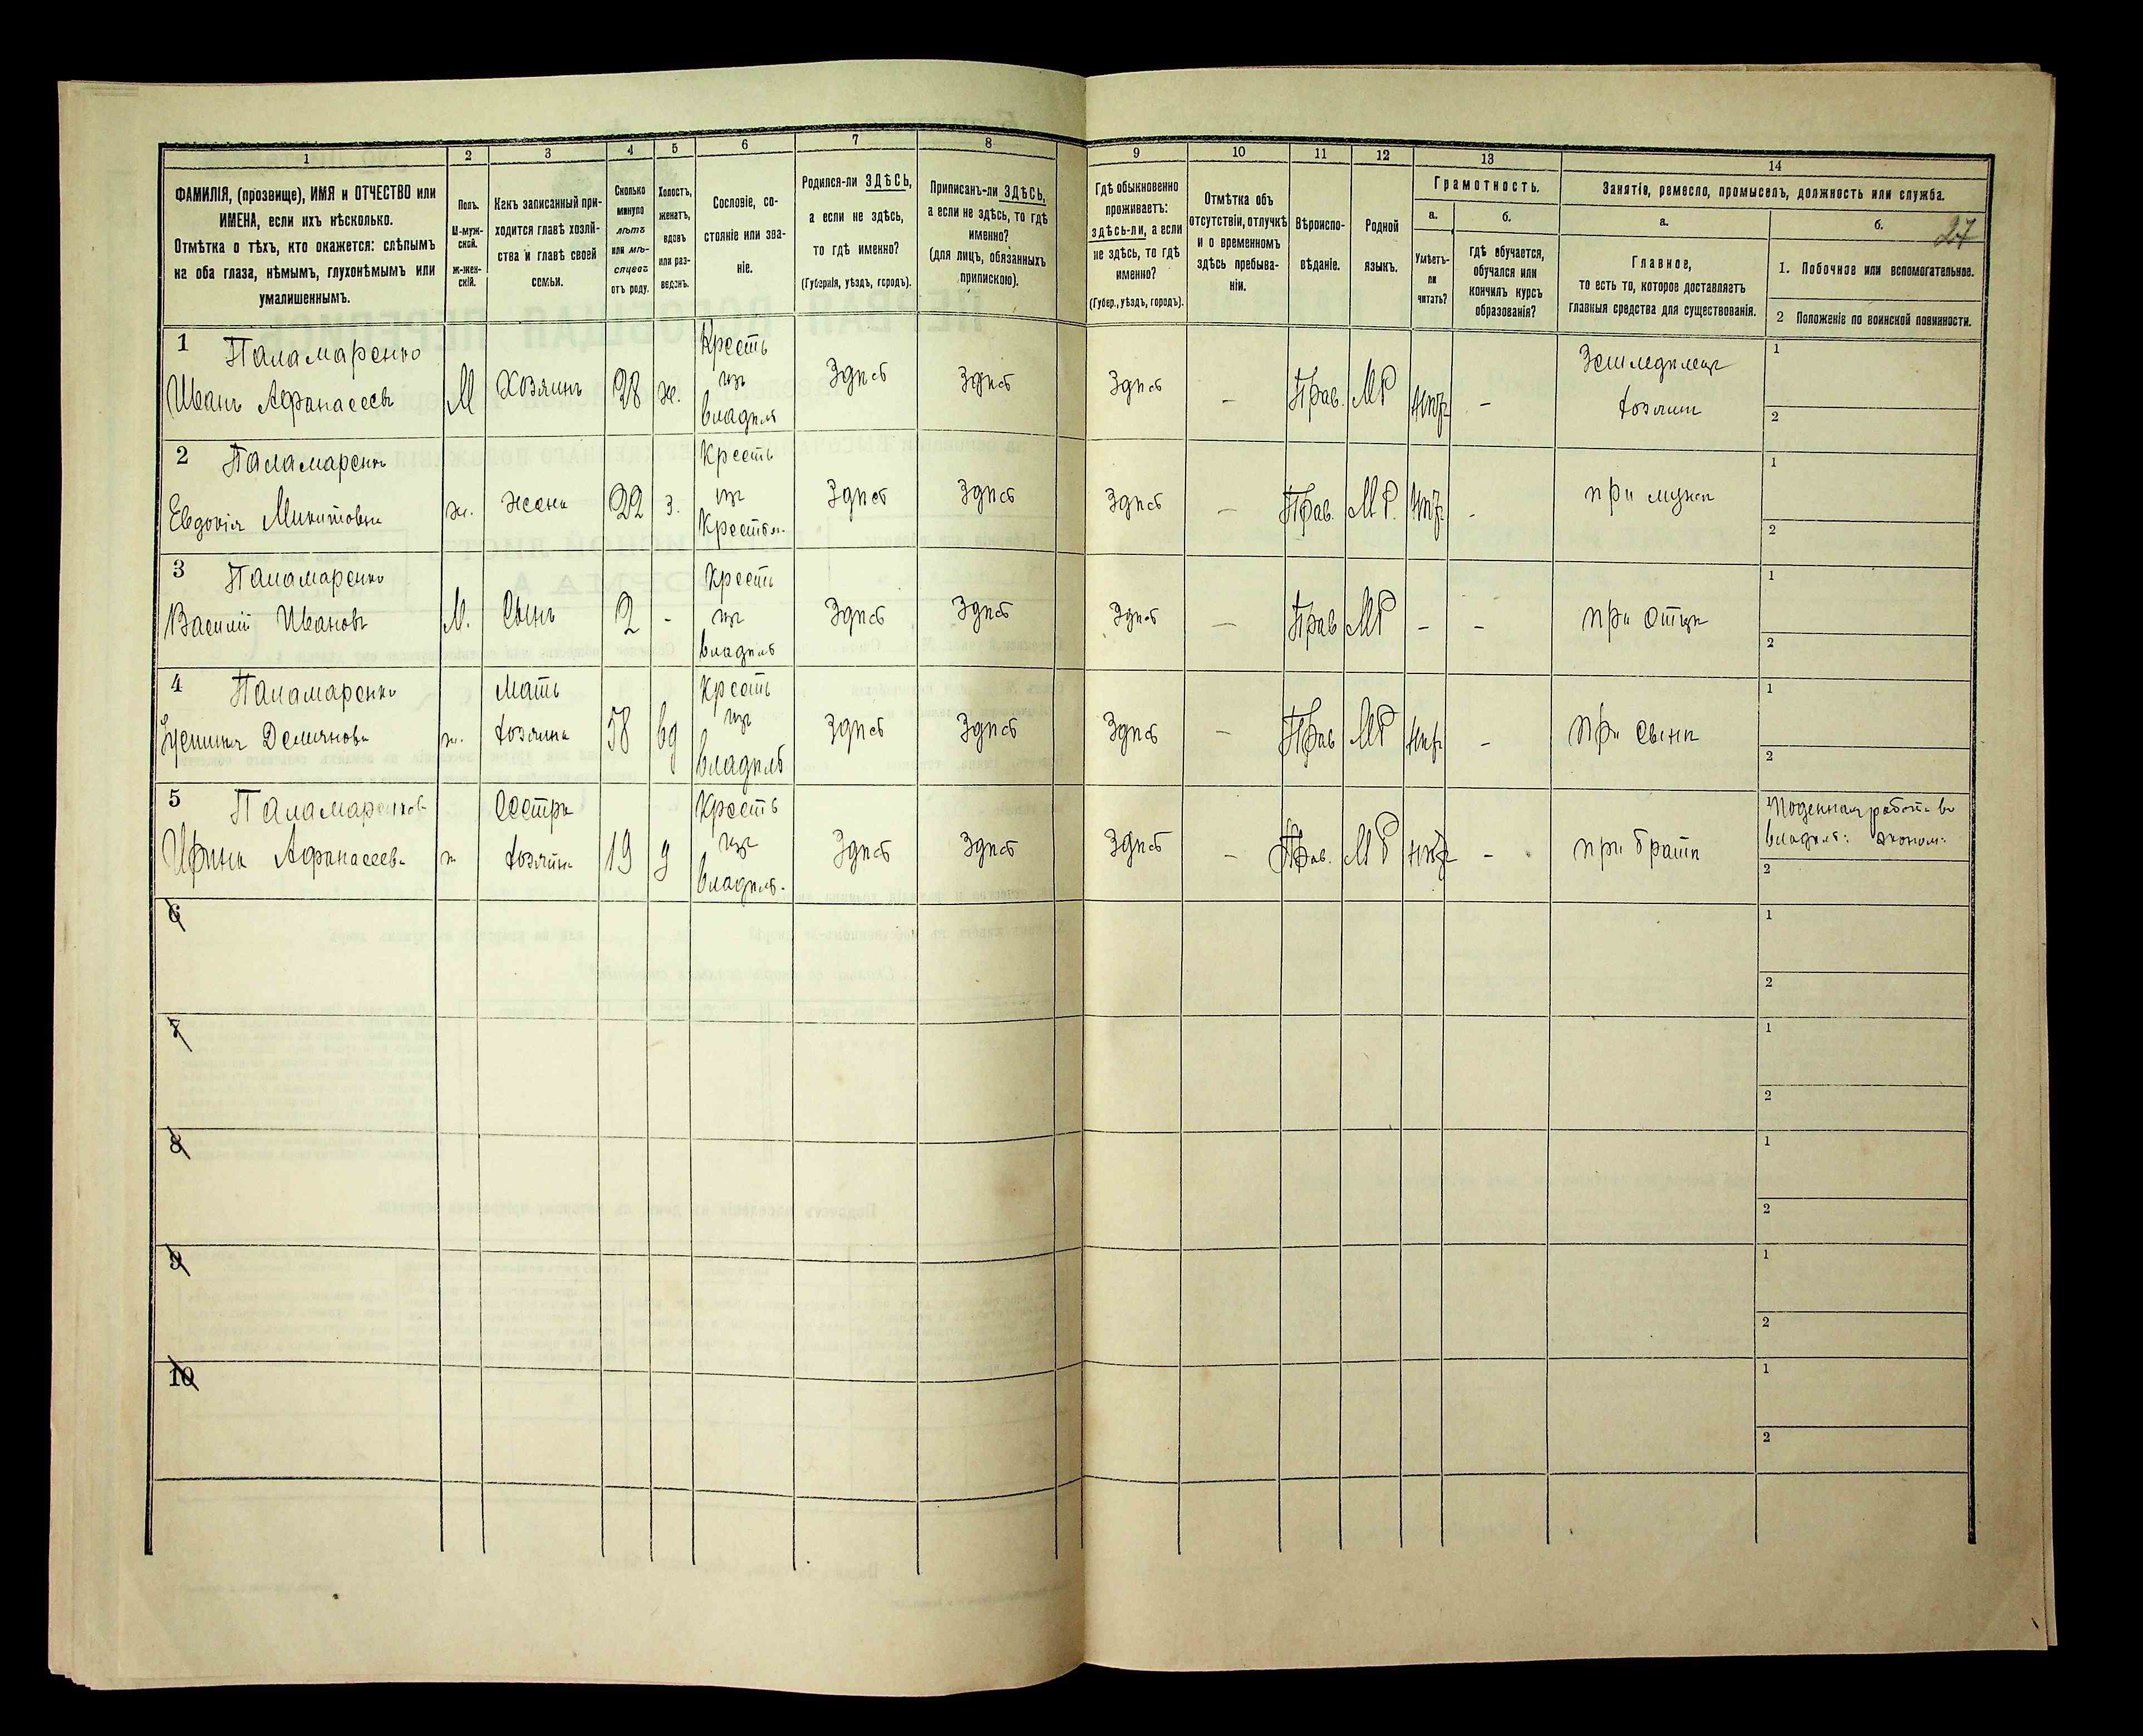 1
ФАМИЛІЯ, (прозвище), ИМЯ и ОТЧЕСТВО или
ИМЕНА, если ихъ нѣсколько.
Отмѣтка о тѣхъ, кто окажется: слѣпымъ
на оба глаза, нѣмымъ, глухонѣмымъ или
умалишеннымъ.
2
Полъ.
М-муж-
ской.
Ж-жен-
скій.
3
Какъ записанный при-
ходится главѣ хозяй-
ства и главѣ своей
семьи.
4
Сколько
минуло
лѣтъ
или мѣ-
сяцевъ
отъ роду.
5
Холостъ,
женатъ,
вдовъ
или раз-
веденъ.
6
Сословіе, со-
стояніе или зва-
ніе.
7
Родился-ли ЗДѢСЬ,
а если не здѣсь,
то гдѣ именно?
(Губернія, уѣздъ, городъ).
8
Приписанъ-ли ЗДѢСЬ,
а если не здѣсь, то гдѣ
именно?
(для лицъ, обязанныхъ
припискою).
9
Гдѣ обыкновенно
проживаетъ:
здѣсь-ли, а если
не здѣсь, то гдѣ
именно?
(Губер., уѣздъ, городъ).
10
Отмѣтка объ
отсутствіи, отлучкѣ
и о временномъ
здѣсь пребыва-
ніи.
11
Вѣроиспо-
вѣданіе.
12
Родной
языкъ.
13
Грамотность.
а.
Умѣетъ-
ли
читать?
б.
гдѣ обучается,
обучался или
кончилъ курсъ
образованія?
14
Занятіе, ремесло, промыселъ, должность или служба.
а.
Главное,
то есть то, которое доставляетъ
главныя средства для существованія.
б.
27
1. Побочное или вспомогательное.
2 Положеніе по воинской повинности.
1 Паламаренко
Иванъ Афанасеевъ
М
Хозяинъ
28
ж.
Кресть
изъ
владѣл
Здѣсь
Здѣсь
Здѣсь
–
Прав.
МР
нѣтъ
–
Земледѣлецъ
хозяин
1
2
2 Паламаренк
Евдокія Микитовна
ж.
жена
22
з.
Кресть
изъ
Крестьян.
Здѣсь
Здѣсь
Здѣсь
–
Прав.
МР.
нѣтъ
-
при мужѣ
1
2
3 Паламаренко
Василій Ивановъ
М.
Сынъ
2
-
Кресть
изъ
владѣль
Здѣсь
Здѣсь
Здѣсь
–
Прав
МР
–
–
при Отцѣ
1
2
4 Паламаренко
Демьянова
ж.
Мать
хозяина
58
вд
Кресть
изъ
владѣль
Здѣсь
Здѣсь
Здѣсь
–
Прав
МР
нѣтъ
–
при сынѣ
1
2
5 Паламаренков
Ирина Афанасеева
ж
Сестра
хозяина
19
д
Кресть
изъ
владѣль.
Здѣсь
Здѣсь
Здѣсь
–
Прав.
МР
нѣтъ
–
при братѣ
1 Поденная работа во
владѣл: эконом:
2
6
1
2
7
1
2
8
1
2
9
1
2
10
1
2